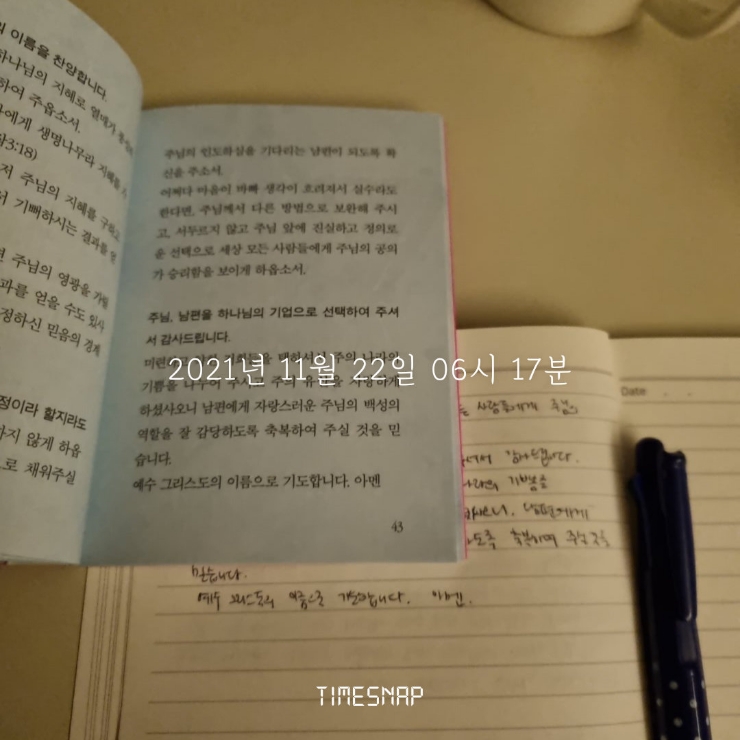 의 이름을 찬양합니다.
하나님의 지혜로 열매가
하여 주옵소서.
에게 생명나무라 지혜를
3:18)
저 주님의 지혜를 구하고
서 기뻐하시는 결과를 얻
주님의 영광을 가릴
과를 얻을 수도 있사
정하신 믿음의 경계
정이라 할지라도
하지 않게 하옵
로 채워주실
주님의 인도하심을 기다리는 남편이 되도록 확
신을 주소서.
어쩌다 마음이 바빠 생각이 흐려져서 실수라도
한다면, 주님께서 다른 방법으로 보완해 주시
고, 서두르지 않고 주님 앞에 진실하고 정의로
운 선택으로 세상 모든 사람들에게 주님의 공의
가 승리함을 보이게 하옵소서.
주님, 남편을 하나님의 기업으로 선택하여 주셔
서 감사드립니다.
주의 나라의
기쁨을 나누어 주시고 주의
하셨사오니 남편에게 자랑스러운 주님의 백성의
역할을 잘 감당하도록 축복하여 주실 것을 믿
습니다.
예수 그리스도의 이름으로 기도합니다. 아멘
43
2021년 11월 22일 06시 17분
Date
사람들에게 주님의
감사드립니다.
기쁨을
남편에게
축복하여 주실 것을
믿습니다.
예수 그리스도의 이름으로 기도합니다. 아멘.
TIMESNAP